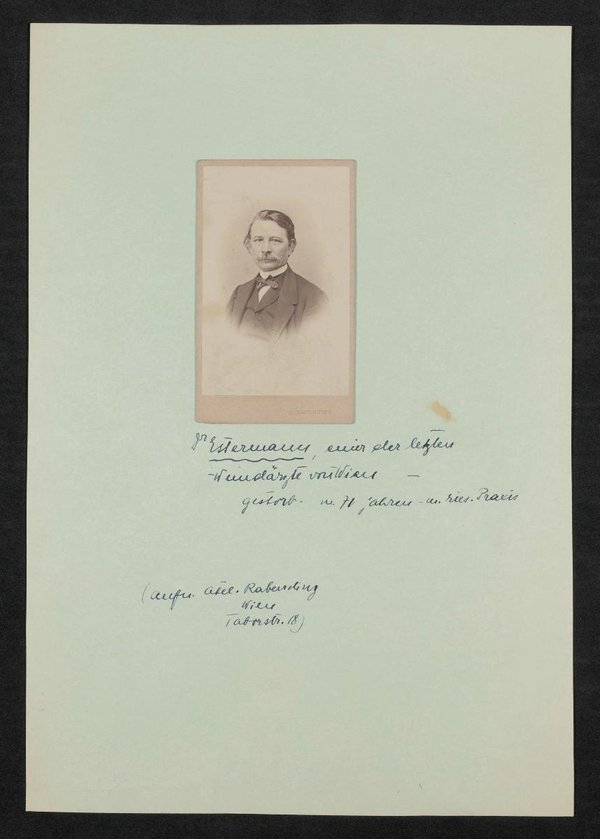 Dr Estermann, einer der letzten
Wundärzte von Wien –
gestorb. m. 71 jahren – m. ries. Praxis
(aufn. Atel. Rabending
Wien
Taborstr. 18)